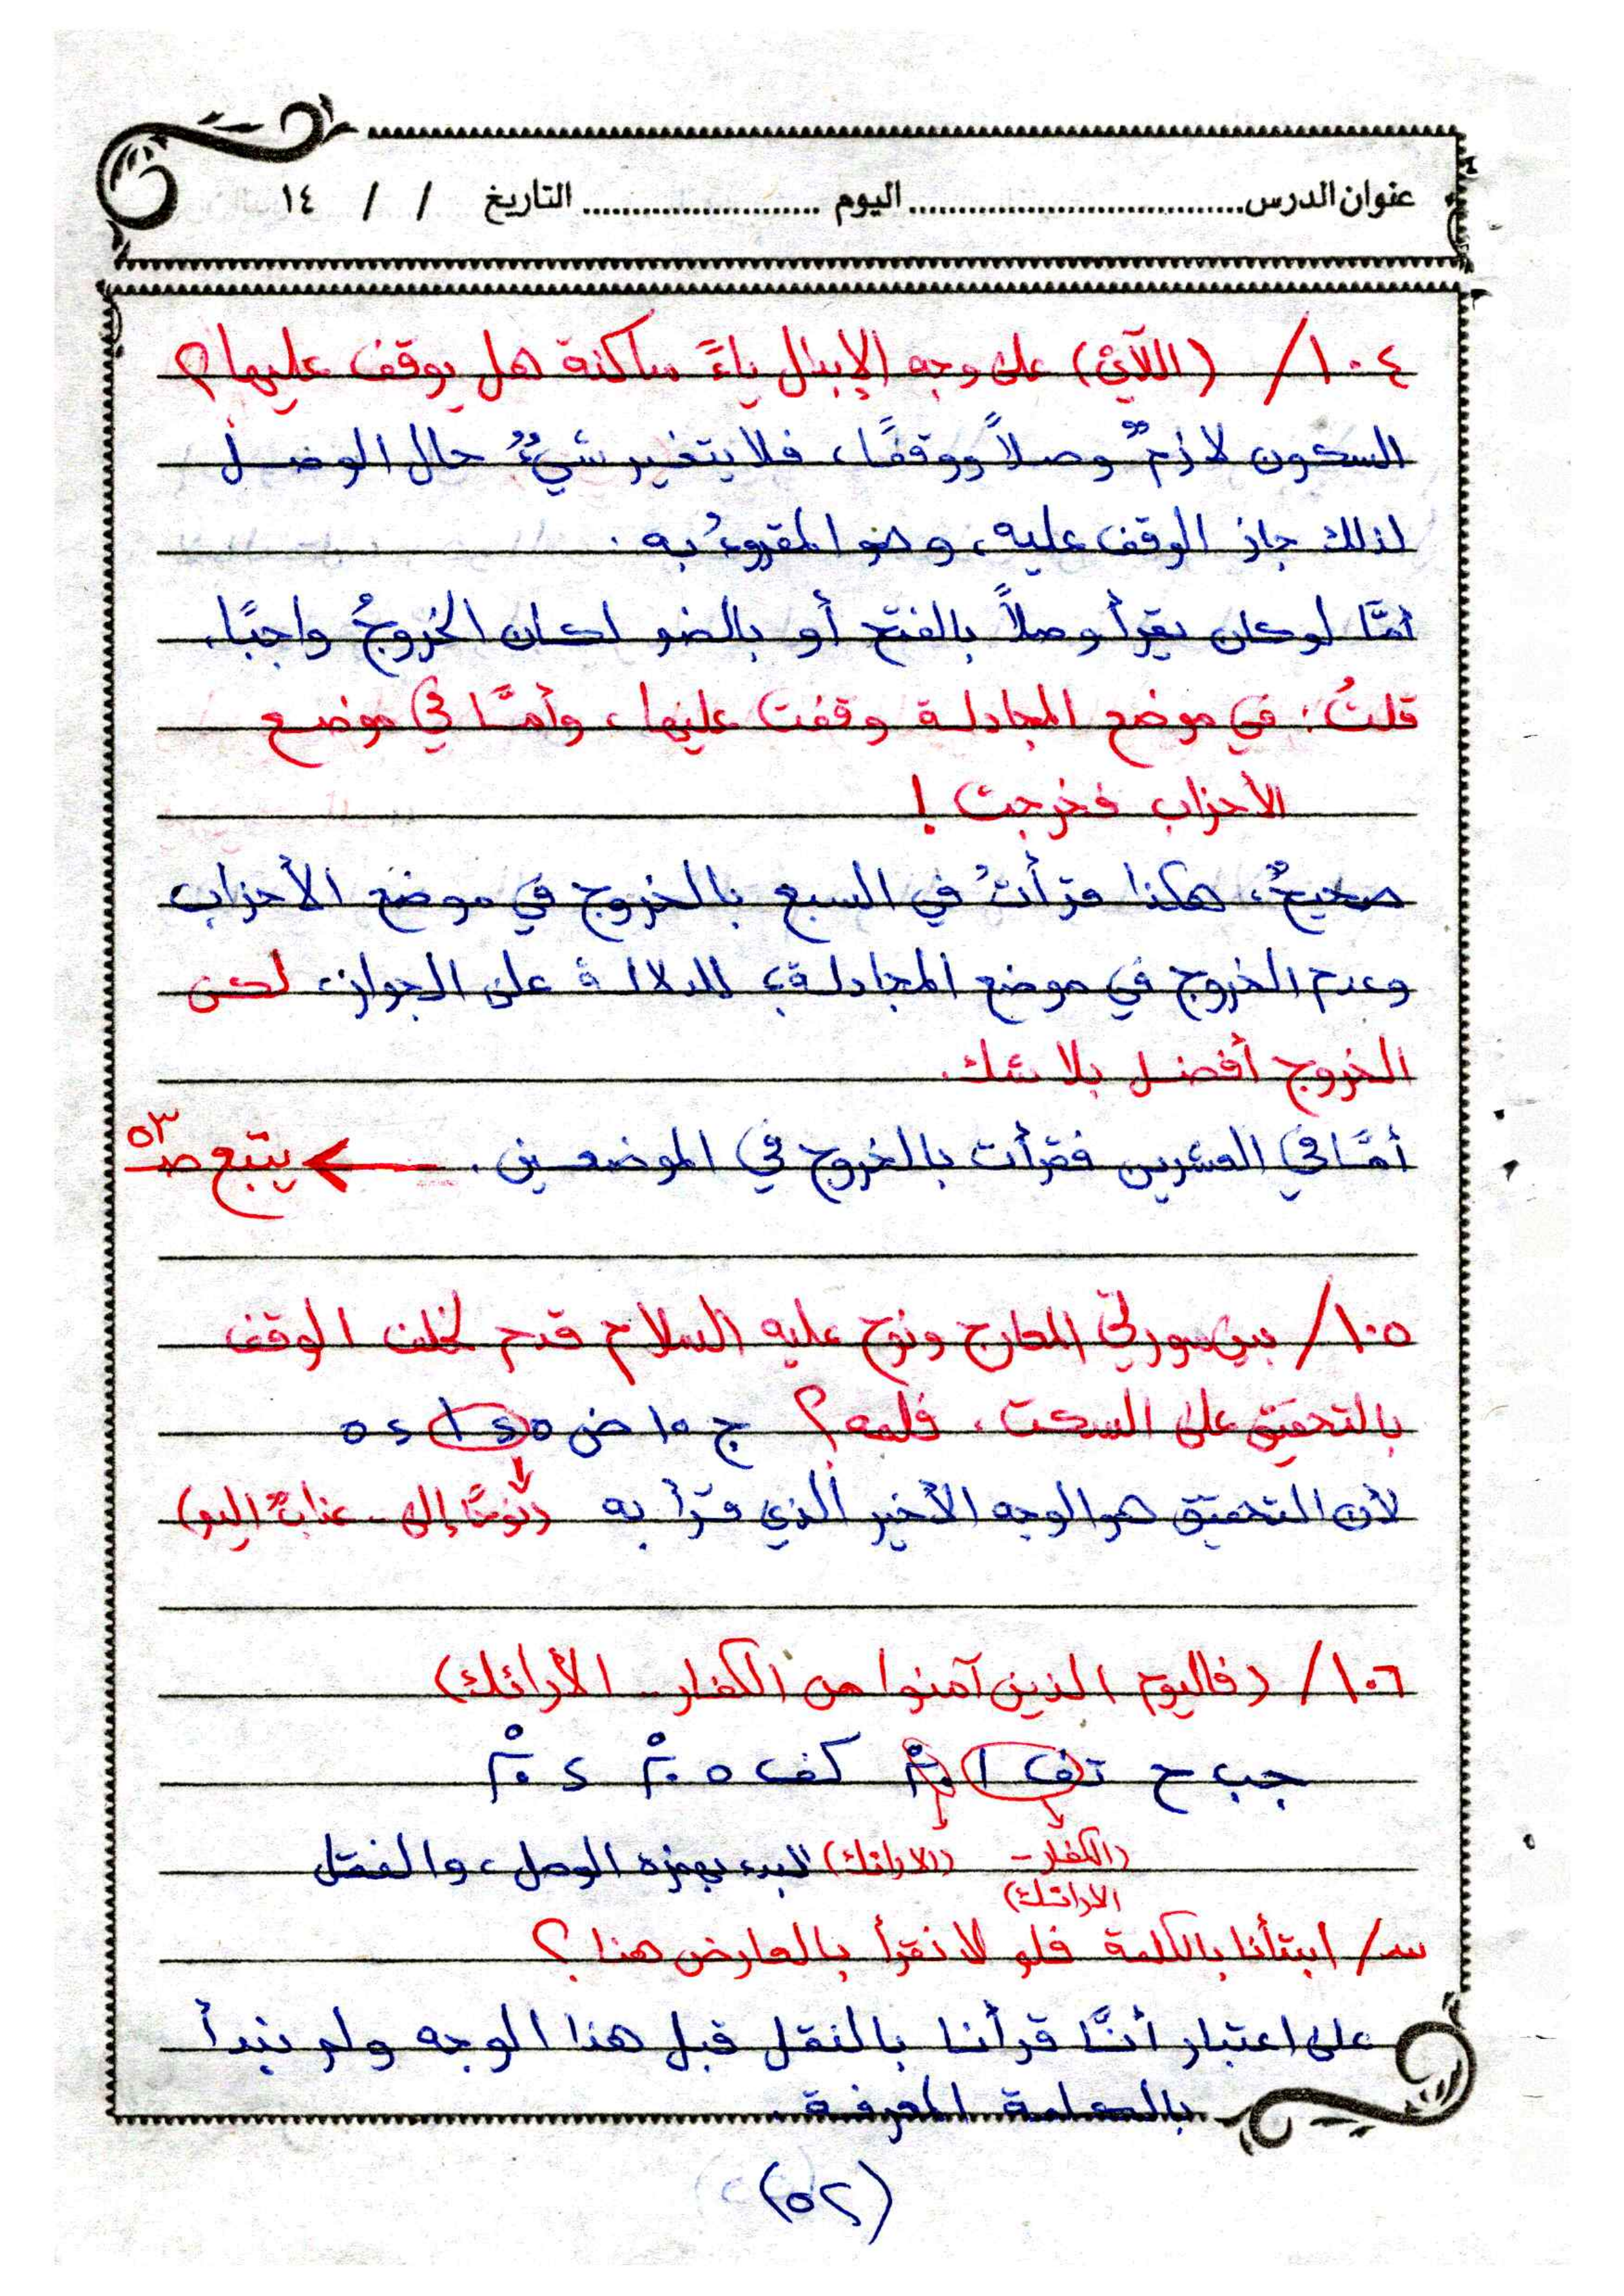 عنوان الدرس.................................اليوم.......................التاريخ / / ١٤
١٠٤/ (اللآئي) على وجه الإبدال ياءً ساكنة هل يوقف عليها؟
السكون لازمٌ وصلاً ووقفًا، فلا يتغير شيءٌ حال الوصل
لذلك جاز الوقف عليه، وهو المقروءُ به.
أمَّا لو كان يقرأ وصلاً بالفتح أو بالضم لكان الخروجُ واجبًا.
قلتُ: في موضع المجادلة وقفت عليها، وأمَّا في موضع
الأحزاب فخرجت!
صحيحٌ، هكذا قرأتُ في السبع بالخروج في موضع الأحزاب
وعدم الخروج في موضع المجادلة؛ للدلالة على الجواز، لكن
الخروج أفضل بلا شك.
أمَّا في العشرين فقرأت بالخروج في الموضعين. ← يتبع صـ ٥٣
١٠٥/ بين سورتي المعارج ونوح عليه السلام قدم لخلف الوقف
بالتحقيق على السكت، فلمه؟ ج ١٥ ض ٥ ٤ ١ ٥ ٤
لأن التحقيق هو الوجه الأخير الذي قرأ به (نوحًا إلى.. عذابٌ أليم)
١٠٦/ (فاليوم الذين آمنوا من الكفار... الأرائك)
جب ح تف ١ كف ٥ ٤
(الكفار - الارائك) (الارائك) البدء بهمزة الوصل، والنقل
س/ ابتدأنا بالكلمة فلم لا نقرأ بالعارض هنا؟
على اعتبار أنَّا قرأنا بالنقل قبل هذا الوجه ولم نبدأ
بالكلمة المعرفة.
(٥٢)